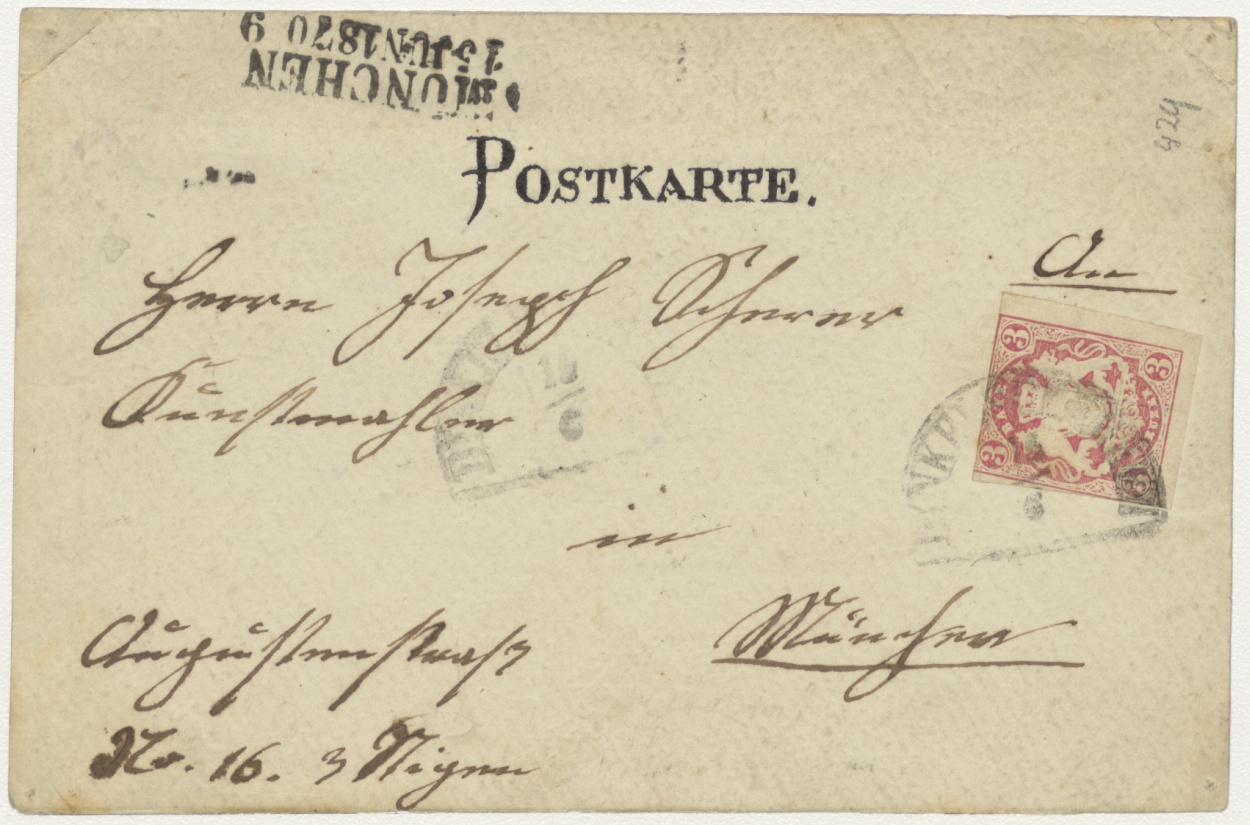 MÜNCHEN
15 JUN 1870 9
424
POSTKARTE.
An
Herrn Joseph Scherer
Kunstmahler
18/6
in
München
Augustenstraße
No. 16. 3 Stigen
3 3 3 3
BAYER